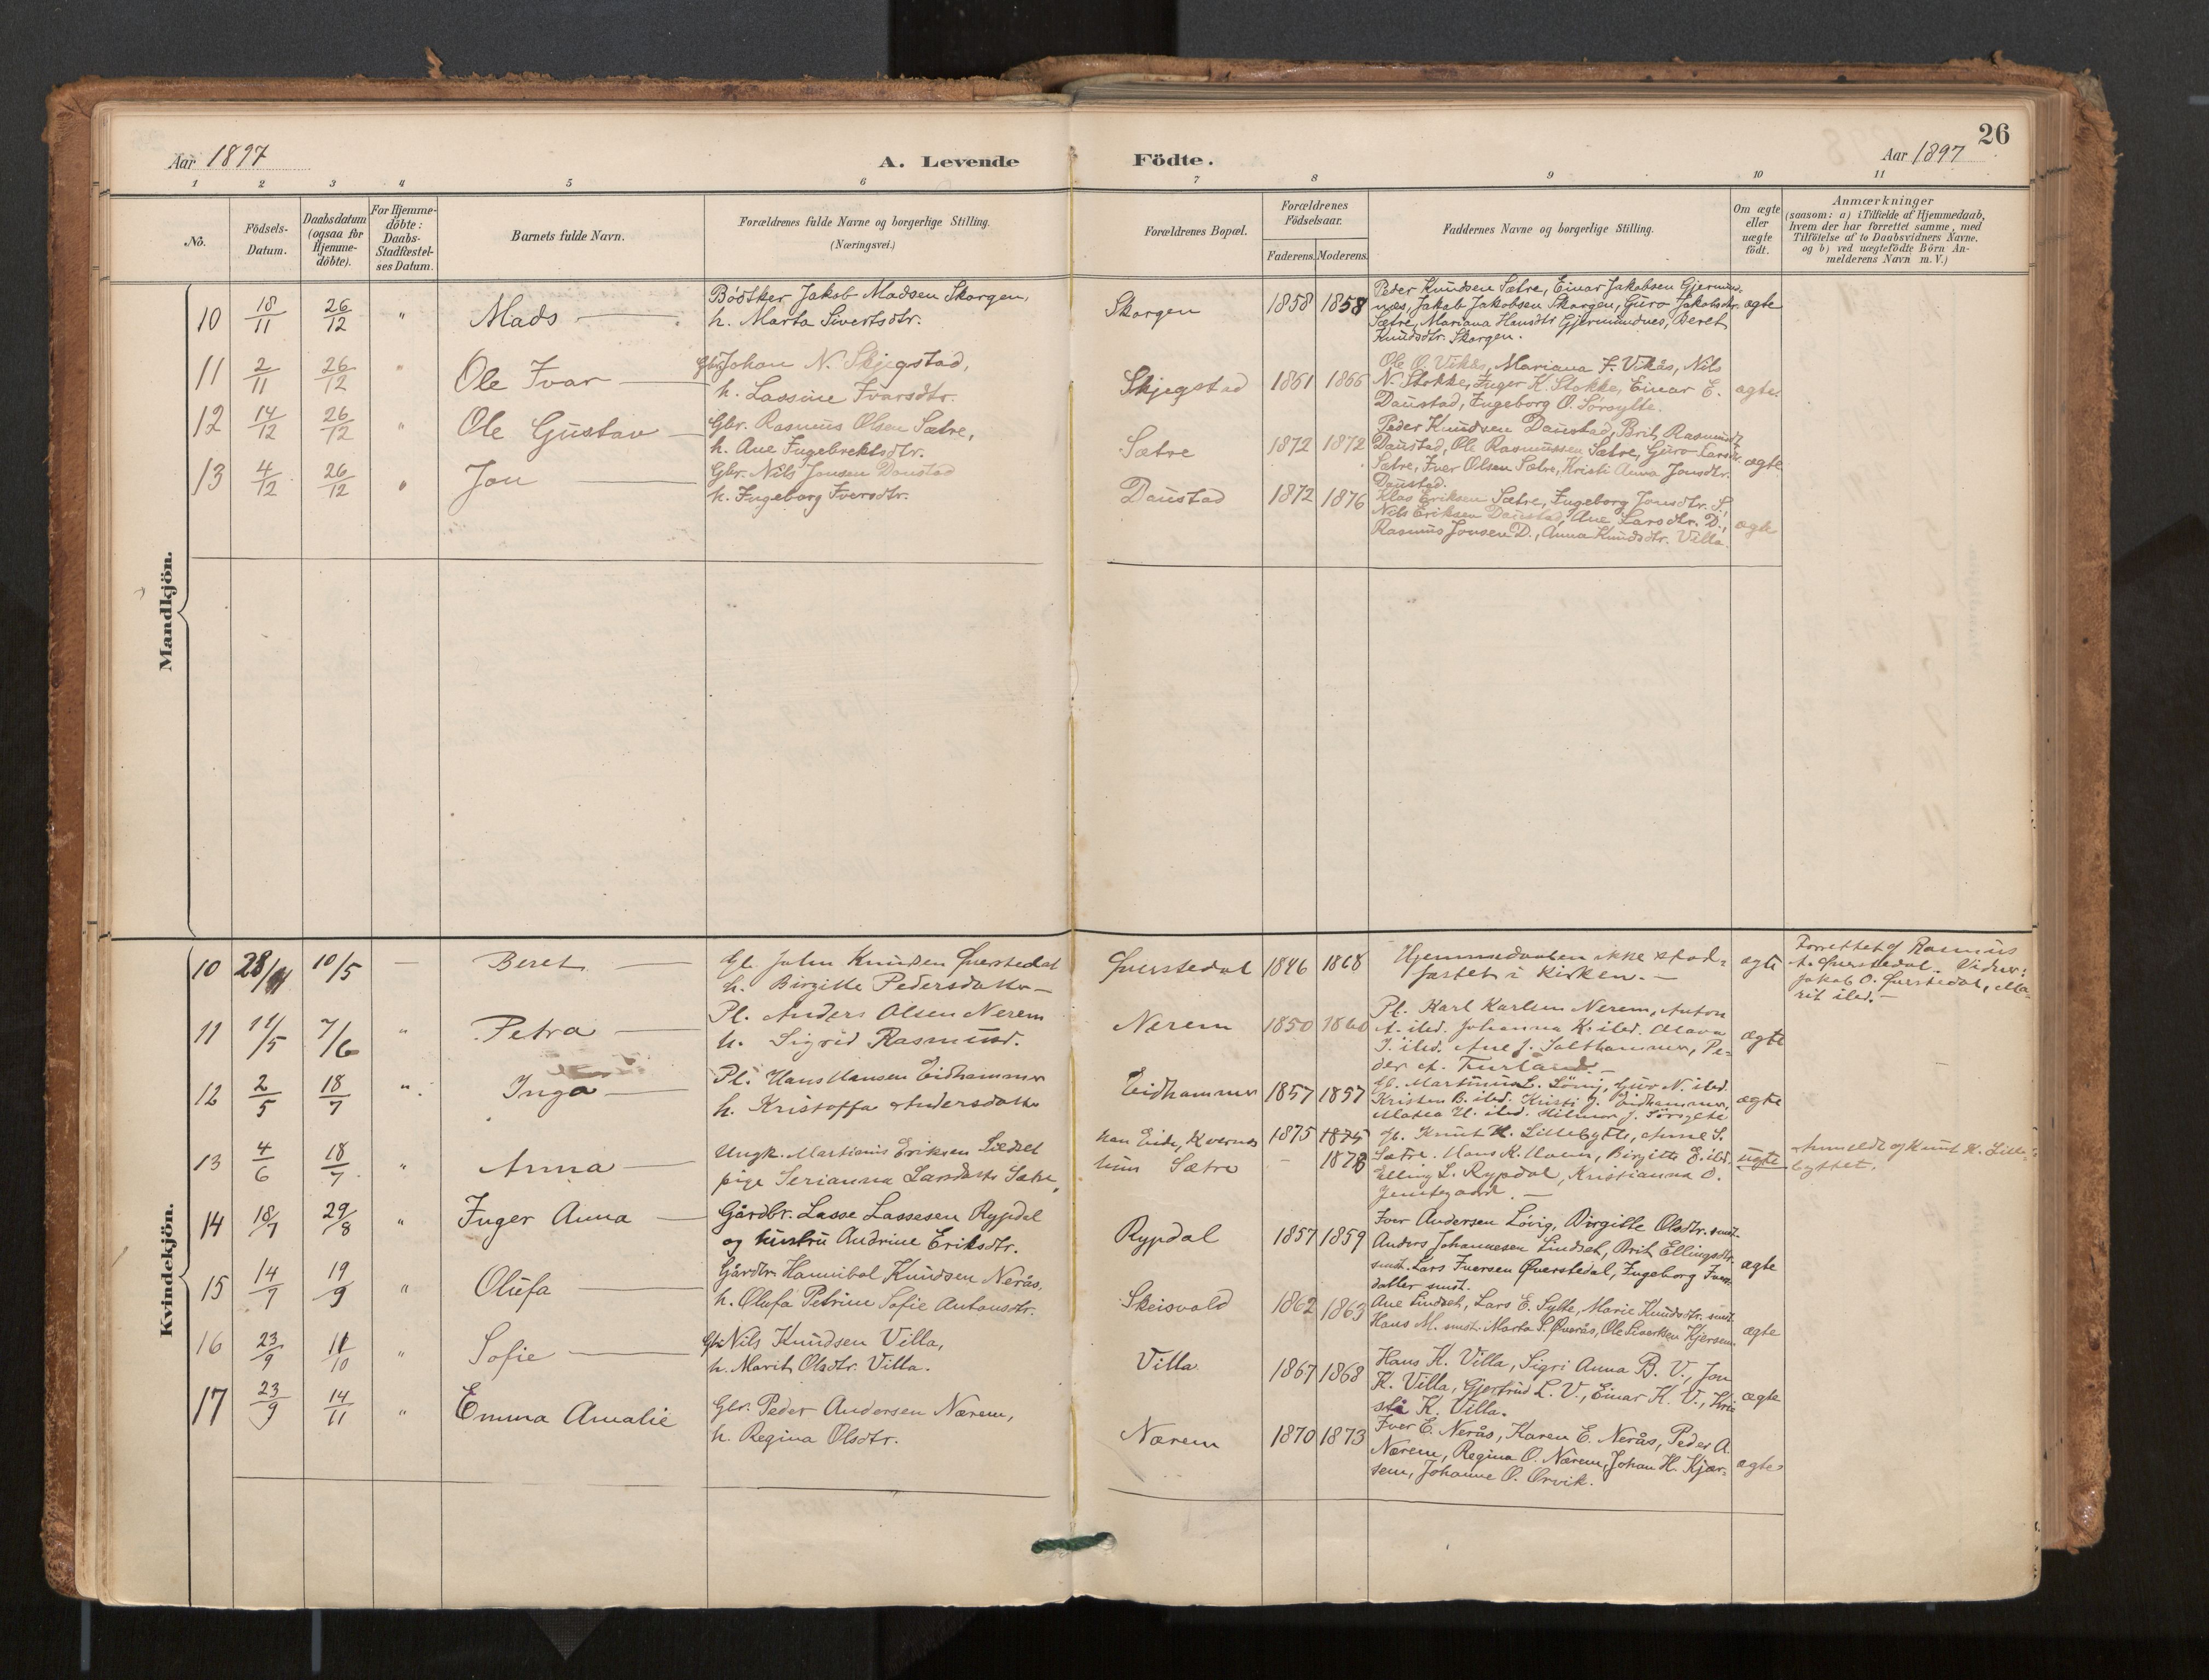 26
Aar 1897
A. Levende Födte.
Aar 1897
1 2 3 4 5 6 7 8 9 10 11
No.
Födsels-Datum.
Daabsdatum (ogsaa for Hjemme-döbte).
For Hjemme-döbte: Daabs-Stadfæstel-ses Datum.
Barnets fulde Navn.
Forældrenes fulde Navne og borgerlige Stilling.
(Næringsvei.)
Forældrenes Bopæl.
Forældrenes Födselsaar.
Faderens. Moderens.
Faddernes Navne og borgerlige Stilling.
Om ægte eller uægte födt.
Anmærkninger
(saasom: a) i Tilfælde af Hjemmedaab,
hvem der har forrettet samme, med
Tilföielse af to Daabsvidners Navne,
og b) ved uægtefödte Börn An-
melderens Navn m. V.)
Mandkjön.
10 18/11 26/12 " Mads
Bödtker Jakob Madsen Skorgen,
h. Marta Sivertsdtr.
Skorgen 1858 1858
Peder Knudsen Sætre, Einar Jakobsen Gjermund-
nes, Jakob Jakobsen Skorgen, Guro Jakobsdtr.
Sætre, Mariana Hansdtr Gjermundnes, Beret
Knudsdtr. Skorgen.
ægte
11 2/11 26/12 " Ole Ivar
Gbr. Johan N. Skjegstad,
h. Lassine Ivarsdtr.
Skjegstad 1861 1866
Ole O. Vikås, Mariana F. Vikås, Nils
N. Stokke, Inger K. Stokke, Einar E.
Daustad, Ingeborg O. Sørsylte.
ægte
12 14/12 26/12 " Ole Gustav
Gbr. Rasmus Olsen Sætre,
h. Ane Ingebrektsdtr.
Sætre 1872 1872
Peder Knudsen Daustad, Brit Rasmusdtr
Daustad, Ole Rasmussen Sætre, Guro Larsdtr.
Sætre, Iver Olsen Sætre, Kristi Anna Jonsdtr.
Daustad.
ægte
13 4/12 26/12 " Jon
Gbr. Nils Jonsen Daustad
h. Ingeborg Iversdtr.
Daustad 1872 1876
Klas Eriksen Sætre, Ingeborg Jonsdtr. S.,
Nils Eriksen Daustad, Ane Larsdtr. D.,
Rasmus Jonsen D., Anna Knudsdtr. Villa.
ægte
Kvindekjön.
10 28/4 10/5 — Beret
Gb. John Knudsen Øverstedal
h. Birgitte Pedersdatter
Øverstedal 1846 1868
Hjemmedaaben ikke stad-
fæstet i Kirken.
ægte
Forrettet af Rasmus
A. Øverstedal. Vidner:
Jakob O. Øverstedal, Ma-
rit ibid.
11 11/5 7/6 " Petra
Pl. Anders Olsen Nerem
h. Sigrid Rasmusd.
Nerem 1850 1860
Pl. Karl Karlsen Nerem, Anton
A. ibid. Johanna K. ibid. Olava
I. ibid. Ane J. Salthammer, Pe-
der A. Furland.
ægte
12 2/5 18/7 " Inga
Pl. Hans Hansen Eidhammer
h. Kristoffa Andersdatter
Eidhammer 1857 1857
Gb. Martinus L. Lövig, Guro N. ibid.
Kristen B. ibid. Kristi J. Eidhammer,
Matea H. ibid. Hilmar J. Sørsylte
ægte
13 4/6 18/7 " Anna
Ungk. Martinus Eriksen Lidset
pige Serianna Larsdatter Sætre,
han Eide, Kvernes 1875 1875
hun Sætre - 1878
Gb. Knut K. Lillebytte, Anne S.
Sætre. Hans K. Moen, Birgitte E. ibd.
Elling L. Rypdal, Kristianna O.
Jemtegaard.
uægte
Anmeldt af Knut K. Lille-
byttet.
14 18/7 29/8 " Inger Anna
Gårdbr. Lasse Lassesen Rypdal
og hustru Andrine Eriksdtr.
Rypdal 1857 1859
Iver Andersen Lövig, Birgitte Olsdtr. smst.
Anders Johannesen Lindset, Brit Ellingsdtr.
smst. Lars Iversen Øverstedal, Ingeborg Ivers-
datter smst.
ægte
15 14/7 19/9 " Olufa
Gårdbr. Hannibal Knudsen Nerås,
h. Olufa Petrine Sofie Antonsdtr.
Skeisvold 1862 1863
Ane Lindset, Lars E. Sylte, Marie Knudsdtr. smst.
Hans M. smst. Marta S. Øverås, Ole Sivertsen Kjersem.
ægte
16 23/9 11/10 " Sofie
Gbr. Nils Knudsen Villa,
h. Marit Olsdtr. Villa.
Villa 1867 1868
Hans K. Villa, Sigri Anna B. V., Jon
K. Villa, Gjertrud L. V., Einar K. V., Kri-
sti K. Villa.
ægte
17 23/9 14/11 " Emma Amalie
Gbr. Peder Andersen Nærem,
h. Regina Olsdtr.
Nærem 1870 1873
Iver E. Nerås, Karen E. Nerås, Peder A.
Nærem, Regina O. Nærem, Johan H. Kjer-
sem, Johanne O. Orvik.
ægte